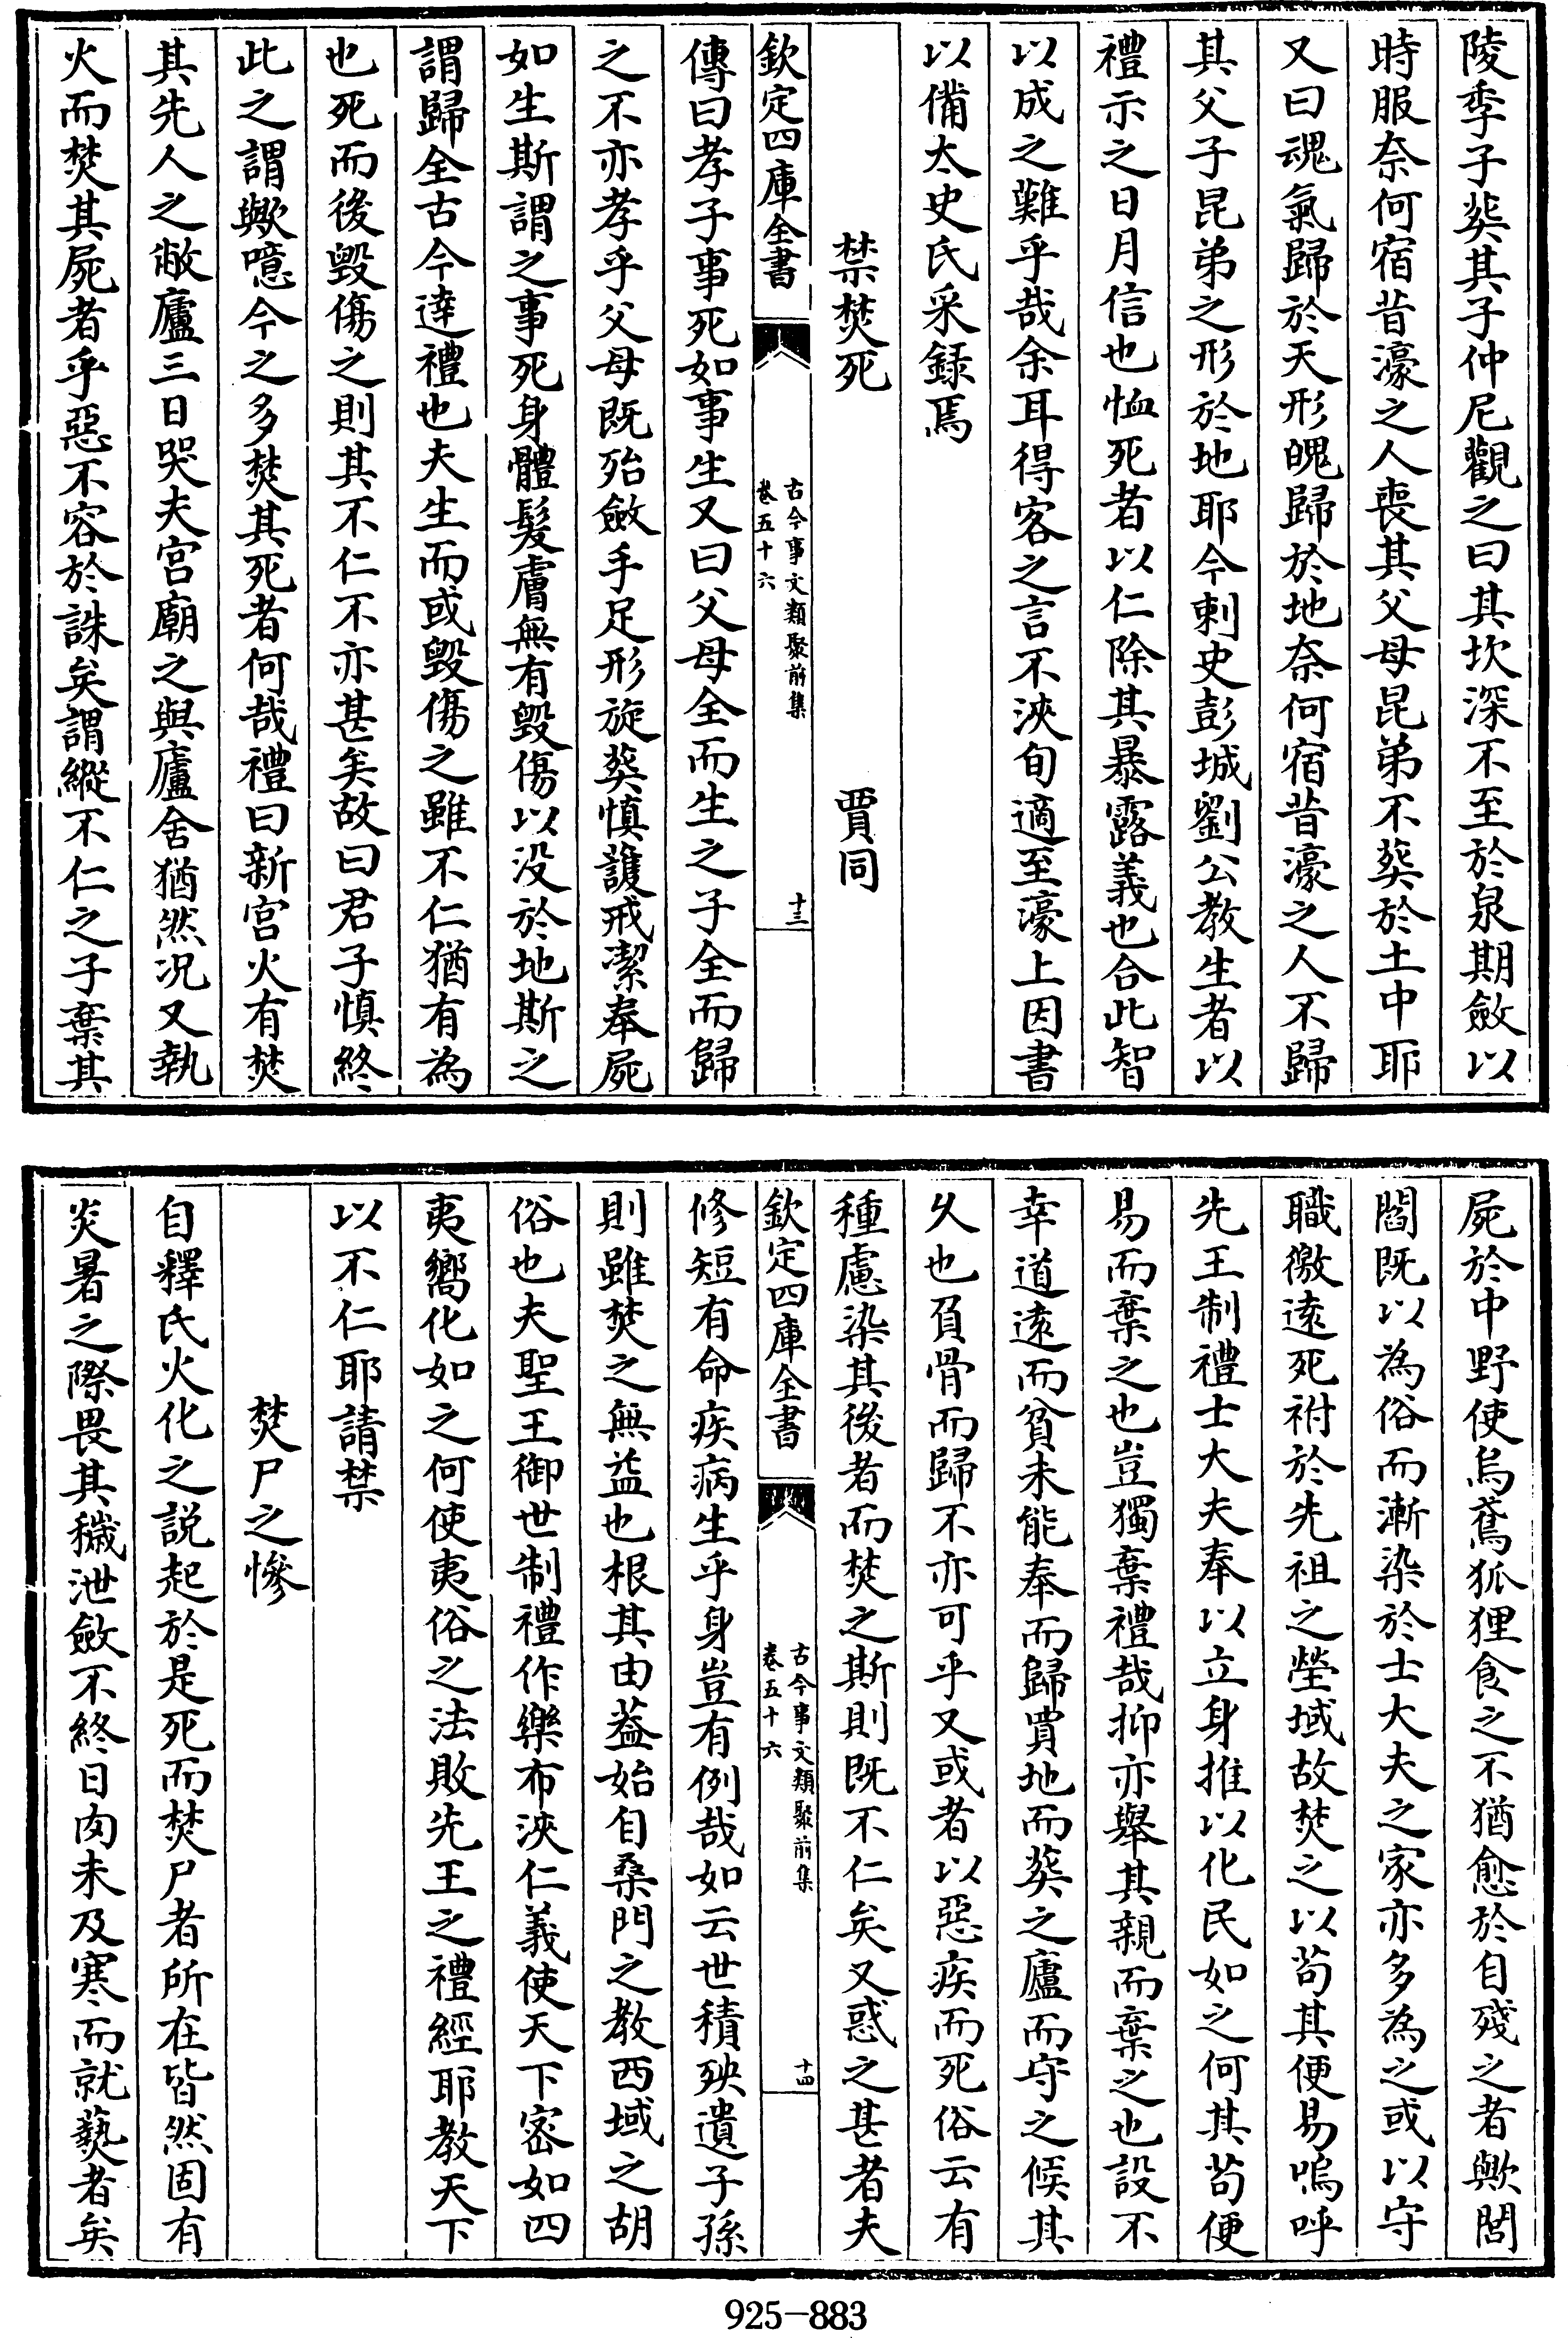 陵季子葬其子仲尼觀之曰其坎深不至於泉期斂以
時服奈何宿昔濠之人喪其父母昆弟不葬於土中耶
又曰魂氣歸於天形魄歸於地奈何宿昔濠之人不歸
其父子昆弟之形於地耶今剌史彭城劉公教生者以
禮示之日月信也恤死者以仁除其暴露義也合此智
以成之難乎哉余耳得客之言不浹旬適至濠上因書
以備太史氏采録焉
禁焚死　賈同
欽定四庫全書
古今事文類聚前集
卷五十六
十三
傳曰孝子事死如事生又曰父母全而生之子全而歸
之不亦孝乎父母既殆斂手足形旋葬慎護戒潔奉屍
如生斯謂之事死身體髮膚無有毀傷以没於地斯之
謂歸全古今達禮也夫生而或毀傷之雖不仁猶有為
也死而後毀傷之則其不仁不亦甚矣故曰君子慎終
此之謂歟噫今之多焚其死者何哉禮曰新宫火有焚
其先人之敝廬三日哭夫宫廟之與廬舍猶然况又執
火而焚其屍者乎惡不容於誅矣謂縱不仁之子棄其
屍於中野使烏鳶狐狸食之不猶愈於自殘之者歟閭
閻既以為俗而漸染於士大夫之家亦多為之或以守
職徼逺死祔於先祖之塋域故焚之以茍其便易嗚呼
先王制禮士大夫奉以立身推以化民如之何其茍便
易而棄之也豈獨棄禮哉抑亦舉其親而棄之也設不
幸道逺而貧未能奉而歸買地而葬之廬而守之候其
久也負骨而歸不亦可乎又或者以惡疾而死俗云有
種慮染其後者而焚之斯則既不仁矣又惑之甚者夫
欽定四庫全書
古今事文類聚前集
卷五十六
十四
修短有命疾病生乎身豈有例哉如云世積殃遺子孫
則雖焚之無益也根其由葢始自桑門之教西域之胡
俗也夫聖王御世制禮作樂布浹仁義使天下密如四
夷嚮化如之何使夷俗之法敗先王之禮經耶教天下
以不仁耶請禁
焚尸之慘
自釋氏火化之説起於是死而焚尸者所在皆然固有
炎暑之際畏其穢泄斂不終日肉未及寒而就爇者矣
925-883